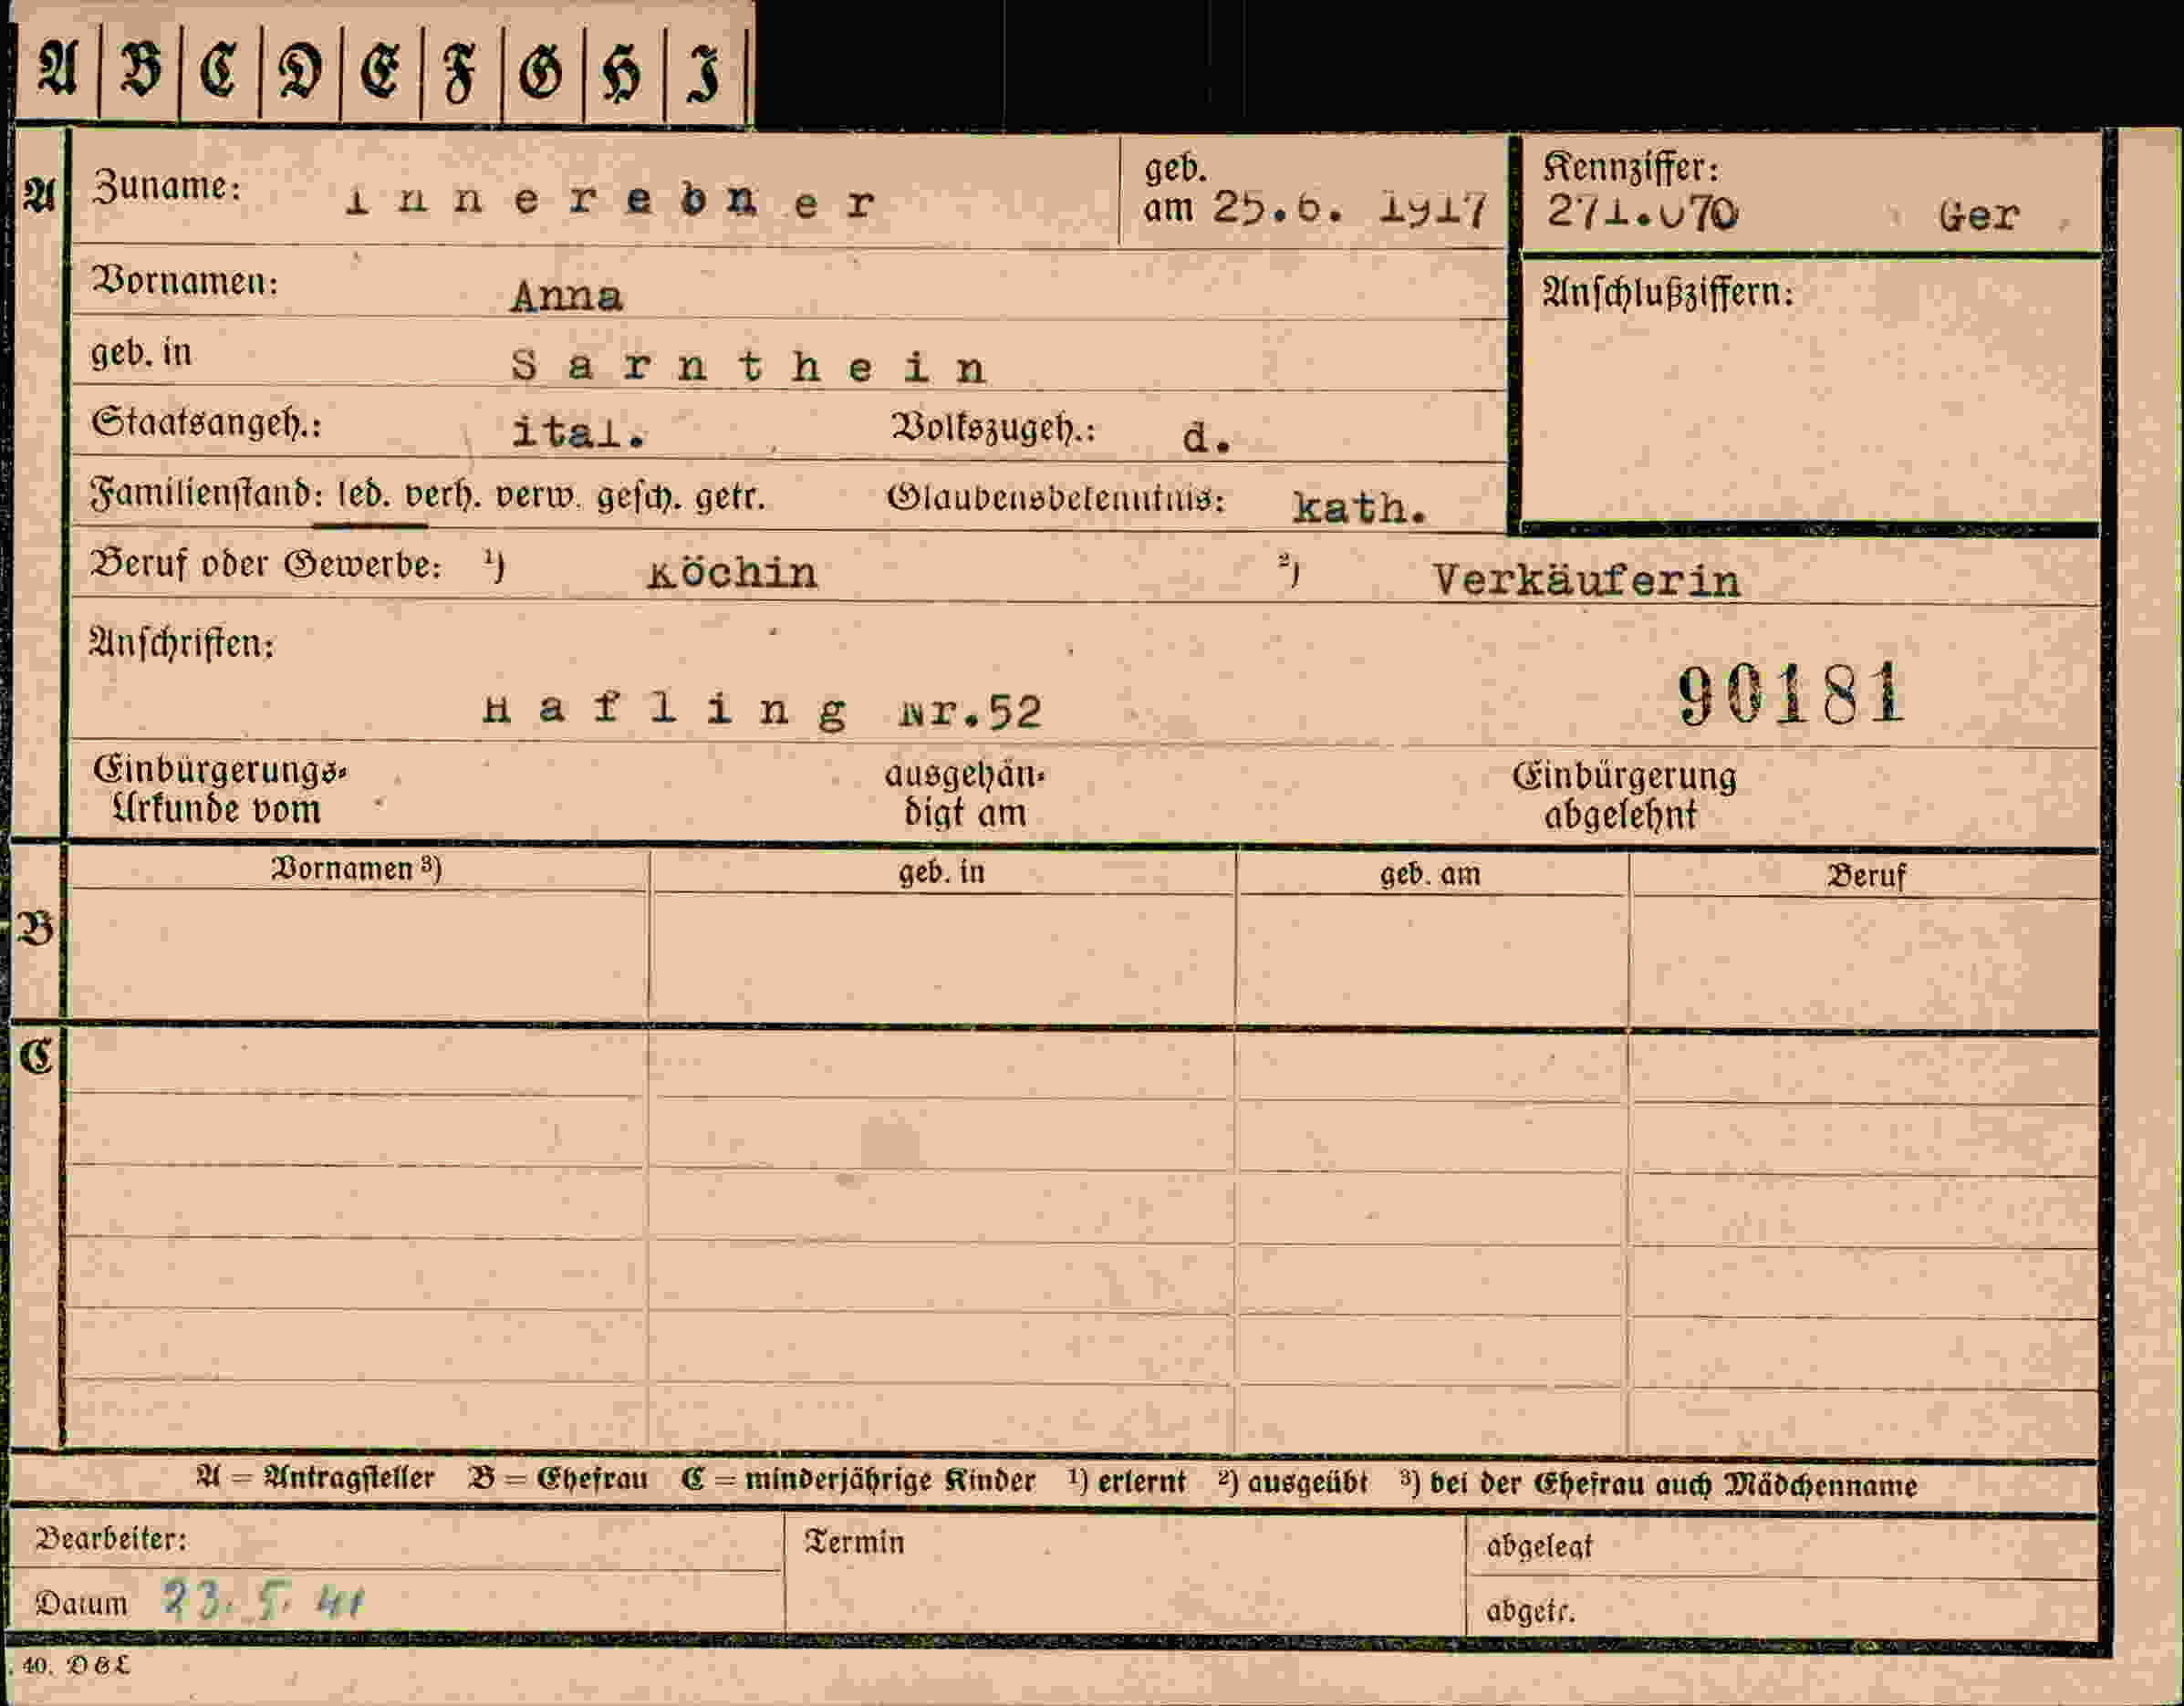 A B C D E F G H I
A Zuname: Innerebner geb. am 25.6. 1917 Kennziffer: 271.070 Ger
Vornamen: Anna Anschlußziffern:
geb. in Sarnthein
Staatsangeh.: ital. Volkszugeh.: d.
Familienstand: led. verh. verw. gesch. getr. Glaubensbekenntnis: kath.
Beruf oder Gewerbe: ¹) Köchin ²) Verkäuferin
Anschriften:
Hafling Nr.52 90181
Einbürgerungs- ausgehän- Einbürgerung
Urkunde vom digt am abgelehnt
Vornamen ³) geb. in geb. am Beruf
B
C
A = Antragsteller B = Ehefrau C = minderjährige Kinder ¹) erlernt ²) ausgeübt ³) bei der Ehefrau auch Mädchenname
Bearbeiter: Termin abgelegt
Datum 23. 5. 41 abgetr.
40. D &